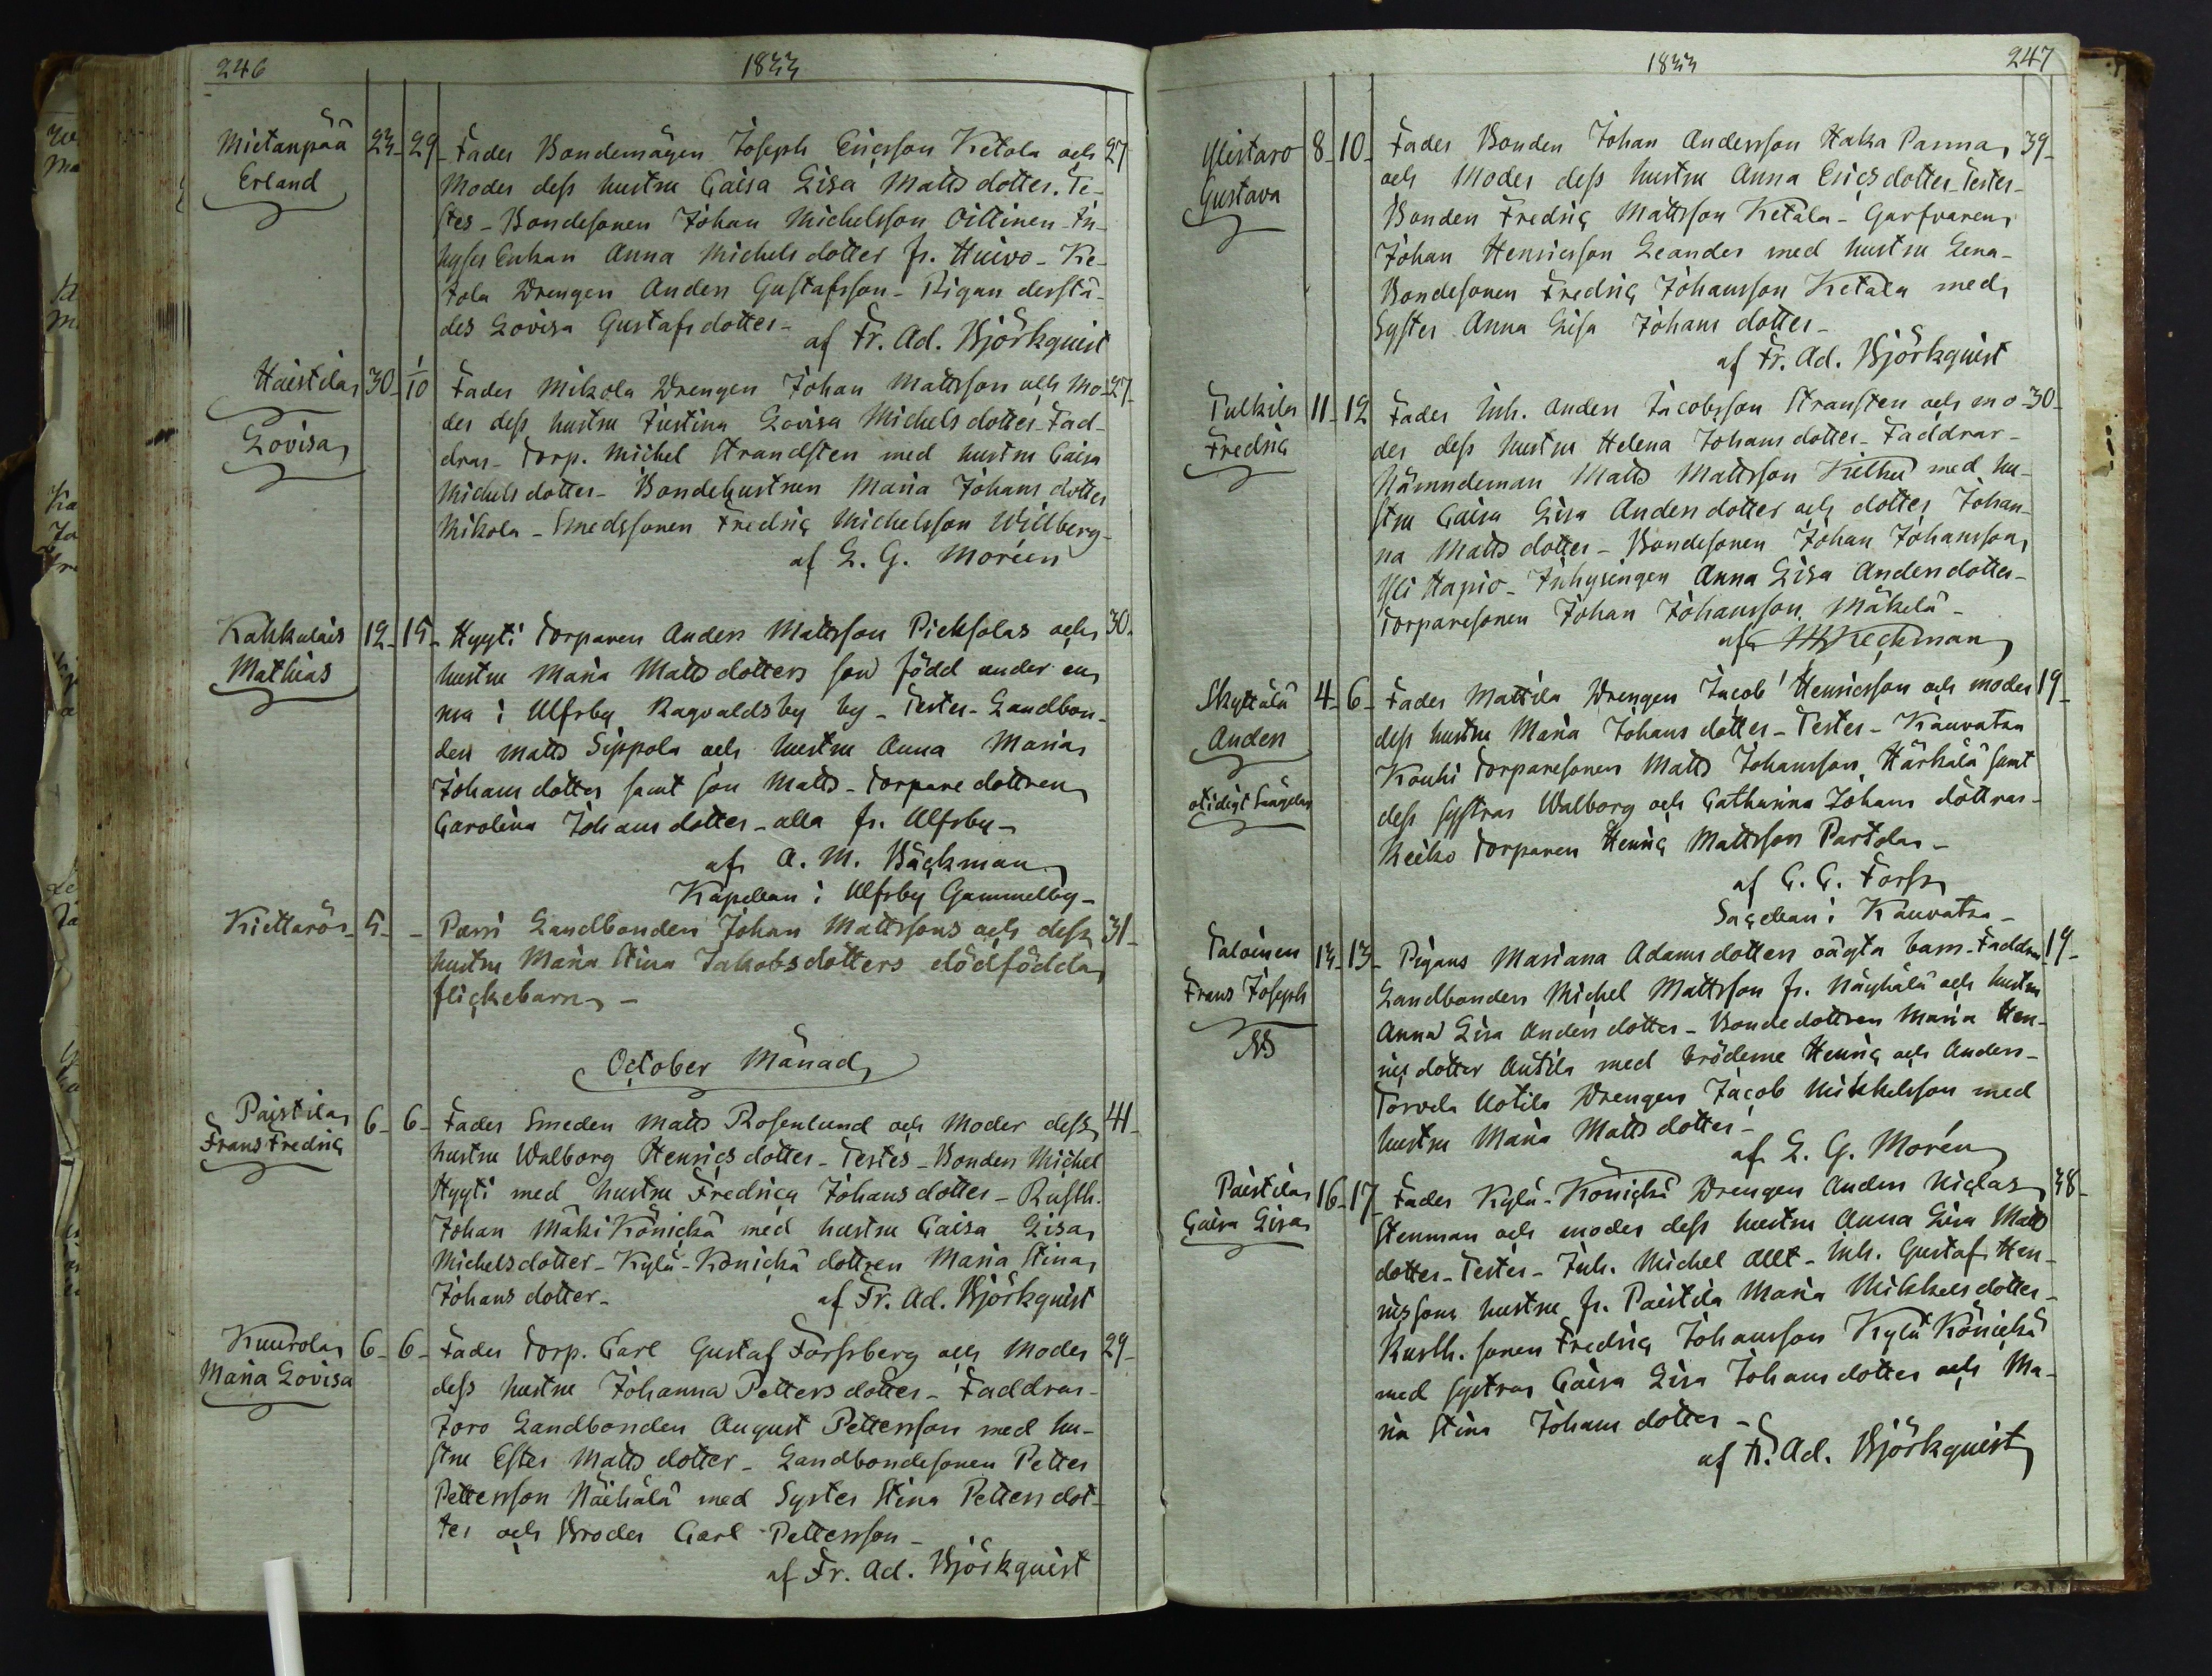 246 1833
Mietanpää 23 29 Fader Bondemågen Joseph Ericsson Ketola och 27
Erland Moder dess hustru Caisa Lisa Matts dotter. Te-
stes - Bondesonen Johan Michelsson Oittinen - In-
hyses Enkan Anna Michels dotter fr. Huivo - Ke-
tola Drengen Anders Gustafsson - Pigan derstä-
des Lovisa Gustafs dotter -
af Fr. Ad. Björkquist
Haistila 30 1/10 Fader Mikola Drengen Johan Mattsson och Mo- 27
Lovisa der dess hustru Justina Lovisa Michels dotter - Fad-
drar - Torp. Michel Strandsten med hustru Caisa
Michels dotter - Bondehustrun Maria Johans dotter
Mikola - Smedssonen Fredric Michelsson Willberg -
af L. G. Moréen
Kahkulais 12 15 Hyyti Torparen Anders Mattsson Pieksolas och 30
Mathias hustru Maria Matts dotters son född under en
resa i Ulfsby Ragvaldsby by - Testes - Landbon-
den Matts Sippola och hustru Anna Maria
Johans dotter samt son Matts - Torpare dottren
Carolina Johans dotter - alla fr. Ulfsby -
af A. M. Bäckman
Kapellan i Ulfsby Gammelby -
Kiettarös 5 - Parri Landbonden Johan Mattssons och dess 31
hustru Maria Stina Jakobsdotters dödfödda
flickebarn -
October Månad
Paistila 6 6 Fader Smeden Matts Rosenlund och Moder dess 41
Frans Fredric hustru Walborg Henrics dotter - Testes - Bonden Michel
Hyyti med hustru Fredrica Johans dotter - Rusth.
Johan Mäki Könickä med hustru Caisa Lisa
Michelsdotter - Kylä-Könickä dottren Maria Stina
Johans dotter - af Fr. Ad. Björkquist
Kuurola 6 6 Fader Torp. Carl Gustaf Forssberg och Moder 29
Maria Lovisa dess hustru Johanna Petters dotter - Faddrar -
Joro Landbonden August Pettersson med hu-
stru Ester Matts dotter - Landbondesonen Petter
Pettersson Näihälä med Syster Stina Petters dot-
ter och Broder Carl Pettersson -
af Fr. Ad. Björkquist
1833 247
Ylistaro 8 10 Fader Bonden Johan Andersson Haka Panna 39
Gustava och Moder dess hustru Anna Ericsdotter - Testes -
Bonden Fredric Mattsson Ketala - Garfvaren
Johan Henricsson Leander med hustru Lena -
Bondesonen Fredric Johansson Ketala med
Syster Anna Lisa Johans dotter -
af Fr. Ad. Björkquist
Tulkila 11 12 Fader Inh. Anders Jacobsson Stransten och mo- 30
Fredric der dess hustru Helena Johans dotter - Faddrar -
Nämndeman Matts Mattsson Kilkku med hu-
stru Caisa Lisa Anders dotter och dotter Johan-
na Matts dotter - Bondesonen Johan Johansson
Yli Hapio - Inhysingen Anna Lisa Andersdotter -
Torparesonen Johan Johansson Mäkelä -
af Heckman
Skyttälä 4 6 Fader Mattila Drengen Jacob Henricsson och moder 19
Anders dess hustru Maria Johans dotter - Testes - Kauvatsa
Kouhi Torparesonen Matts Johansson Härkälä samt
otidigt Sängelag dess systrar Walborg och Catharina Johans döttrar -
Keiko Torparen Henric Mattsson Partola -
af C. G. Forss
Sacellan i Kauvatsa -
Taloinen 13 13 Pigans Mariana Adams dotters oägta barn - Faddrar 19
Frans Joseph Landbonden Michel Mattsson fr. Näyhälä och hustru
NB Anna Lisa Anders dotter - Bondedottren Maria Hen-
rics dotter Anttila med bröderne Henric och Anders -
Torvela Uotila Drengen Jacob Mikkelsson med
hustru Maria Matts dotter -
af L. G. Morén
Paistila 16 17 Fader Kylä-Könickä Drengen Anders Niclas 38
Caisa Lisa Stenman och moder dess hustru Anna Lisa Matts
dotter - Testes - Inh. Michel Allt - Inh. Gustaf Hen-
rics sons hustru fr. Paistila Maria Mikkels dotter -
Rusth. sonen Fredric Johansson Kylä Könickä
med systrar Caisa Lisa Johans dotter och Ma-
ria Stina Johans dotter -
af Fr. Ad. Björkquist